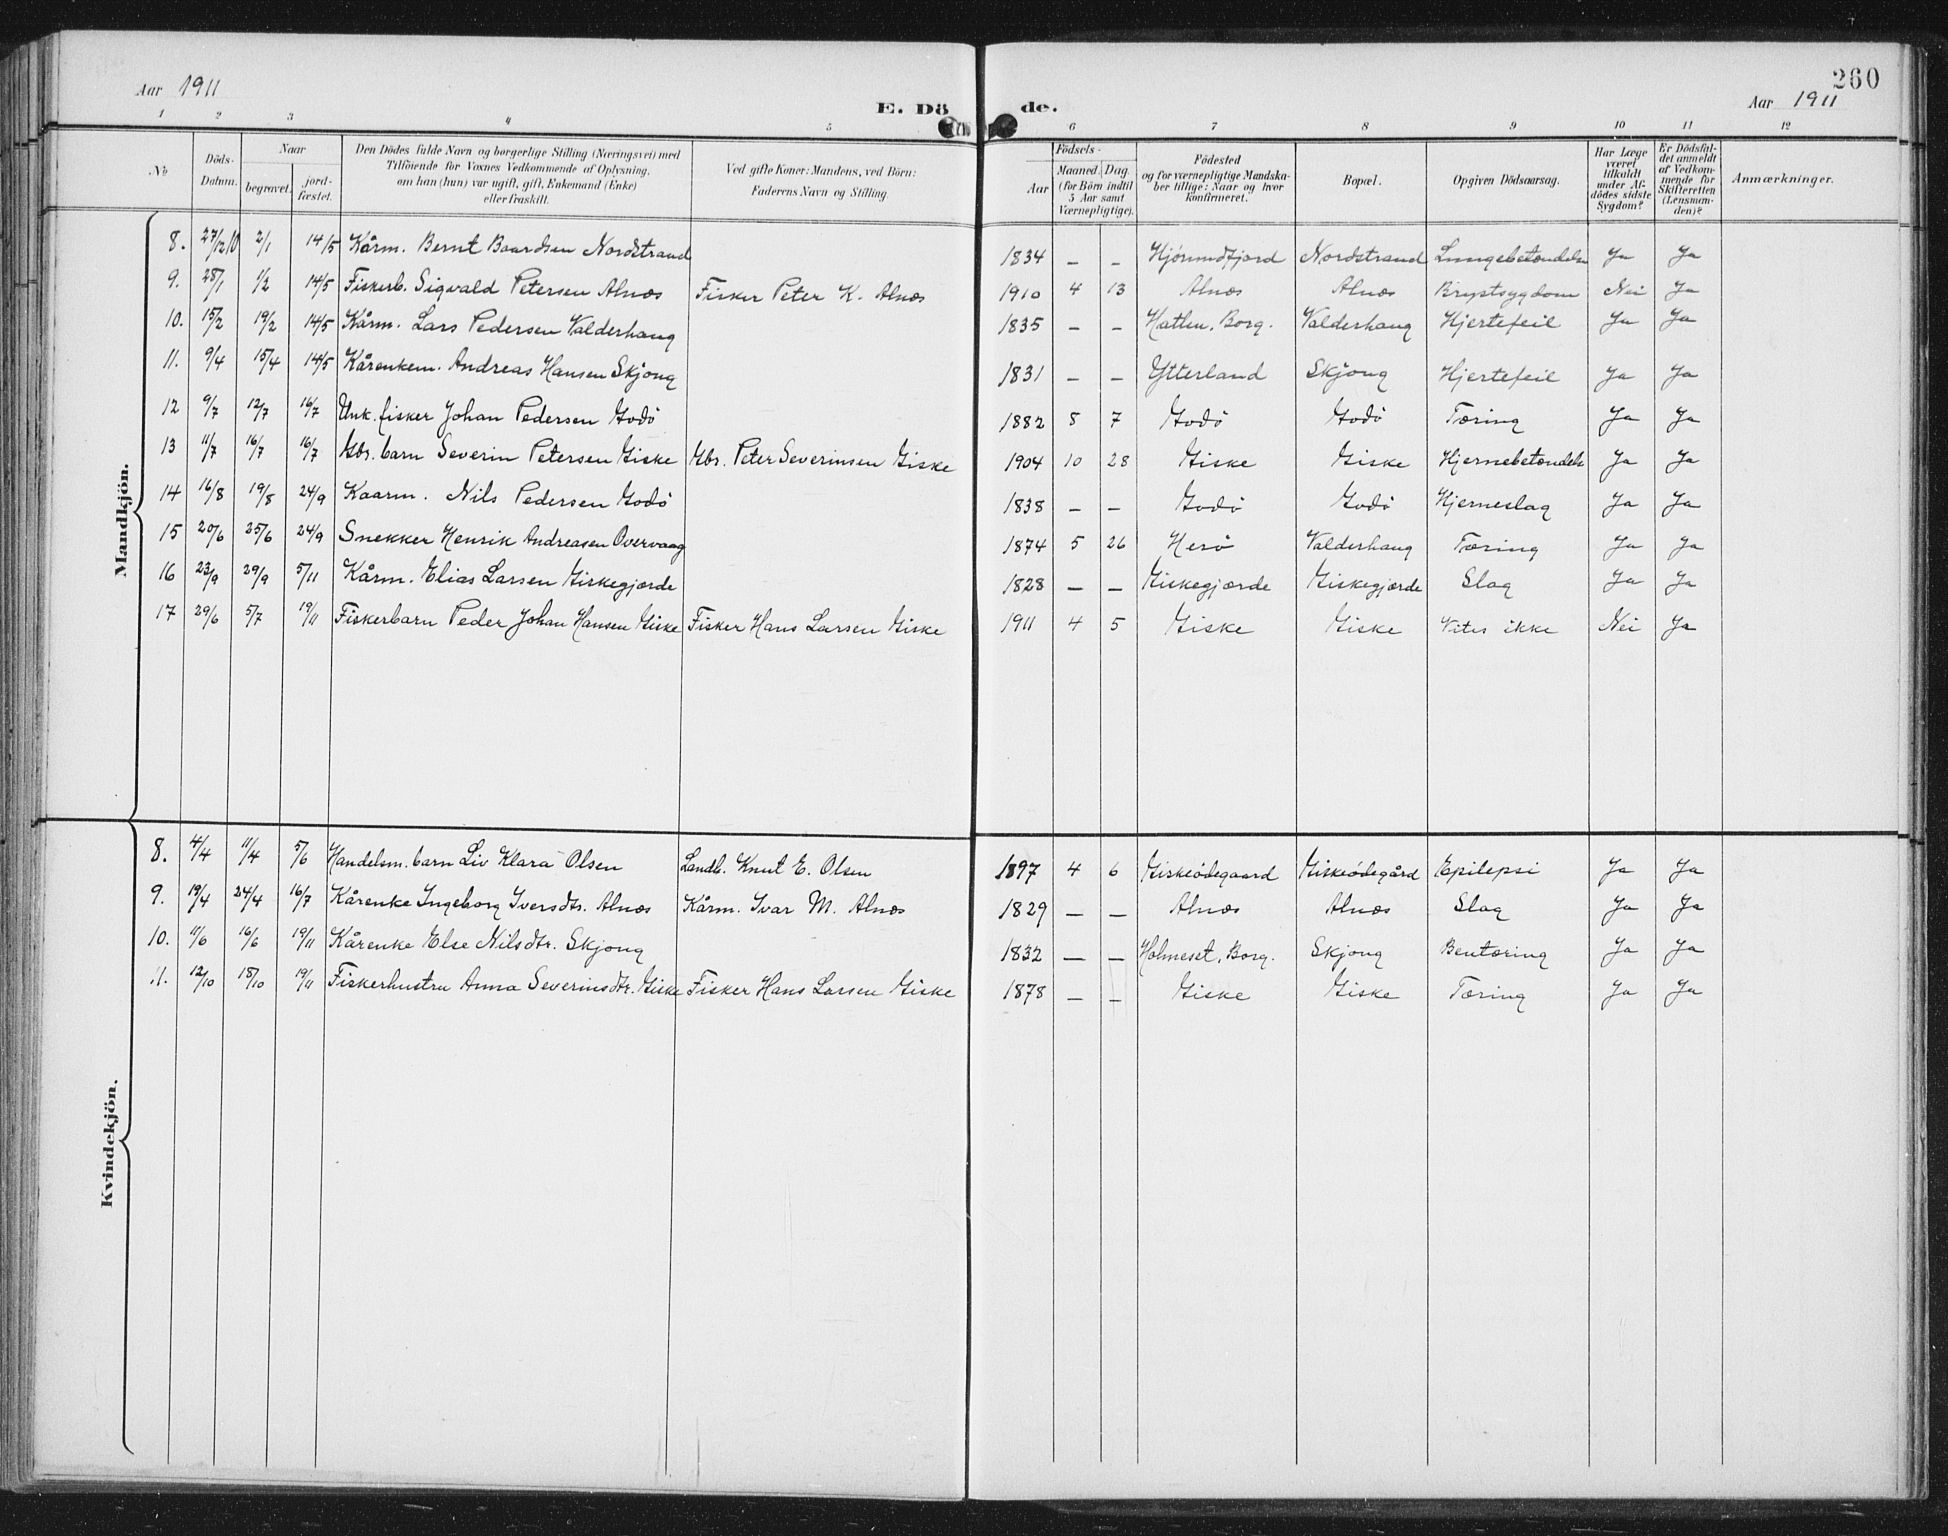 260
Aar 1911
E. Dö de.
Aar 1911
1 2 3 4 5 6 7 8 9 10 11 12
No
Döds-Datum.
Naar
begravet.
jord-fæstet.
Den Dödes fulde Navn og borgerlige Stilling (Næringsvei) med
Tilföiende for Voxnes Vedkommende af Oplysning,
om han (hun) var ugift, gift, Enkemand (Enke)
eller fraskilt.
Ved gifte Koner: Mandens, ved Börn:
Faderens Navn og Stilling.
Födsels-
Aar
Maaned. Dag.
(for Börn indtil
5 Aar samt
Værnepligtige).
Födested
og for værnepligtige Mandska-
ber tillige: Naar og hvor
konfirmeret.
Bopæl.
Opgiven Dödsaarsag.
Har Læge
været
tilkaldt
under Af-
dödes sidste
Sygdom?
Er Dödsfal-
det anmeldt
af Vedkom-
mende for
Skifteretten
(Lensman-
den)?
Anmærkninger.
Mandkjön.
8. 27/12 10 2/1 14/5 Kårm. Bernt Baardsen Nordstrand 1834 – – Hjörundfjord Nordstrand Lungebetændelse Ja Ja
9. 28/1 1/2 14/5 Fiskerb. Sigvald Petersen Alnæs Fisker Peter K. Alnæs 1910 4 13 Alnæs Alnæs Brystsygdom Nei Ja
10. 15/2 19/2 14/5 Kårm. Lars Pedersen Valderhaug 1835 – – Hatlen, Borg. Valderhaug Hjertefeil Ja Ja
11. 9/4 15/4 14/5 Kårenkem. Andreas Hansen Skjong 1831 – – Ytterland Skjong Hjertefeil Ja Ja
12 9/7 12/7 16/7 Unk. fisker Johan Pedersen Godö 1882 8 7 Godö Godö Tæring Ja Ja
13 11/7 16/7 16/7 Gbr. barn Severin Petersen Giske Gbr. Peter Severinsen Giske 1904 10 28 Giske Giske Hjernebetændels Ja Ja
14 16/8 19/8 24/9 Kaarm. Nils Pedersen Godö 1838 – – Godö Godö Hjerneslag Ja Ja
15 20/6 25/6 24/9 Snekker Henrik Andreasen Overvaag 1874 5 26 Herö Valderhaug Tæring Ja Ja
16 23/9 29/9 5/11 Kårm. Elias Larsen Giskegjærde 1828 – – Giskegjærde Giskegjærde Slag Ja Ja
17 29/6 5/7 19/11 Fiskerbarn Peder Johan Hansen Giske Fisker Hans Larsen Giske 1911 4 5 Giske Giske Vites ikke Nei Ja
Kvindekjön.
8. 4/4 11/4 5/6 Handelsm. barn Liv Klara Olsen Landh. Knut E. Olsen 1897 4 6 Giskeödegaard Giskeödegård Epilepsi Ja Ja
9. 19/4 24/4 16/7 Kårenke Ingeborg Iversdtr. Alnæs Kårm. Ivar M. Alnæs 1829 – – Alnæs Alnæs Slag Ja Ja
10. 11/6 16/6 19/11 Kårenke Else Nilsdtr. Skjong 1832 – – Holmeset, Borg. Skjong Bentæring Ja Ja
11. 12/10 18/10 19/11 Fiskerhustru Anna Severinsdtr. Giske Fisker Hans Larsen Giske 1878 – – Giske Giske Tæring Ja Ja